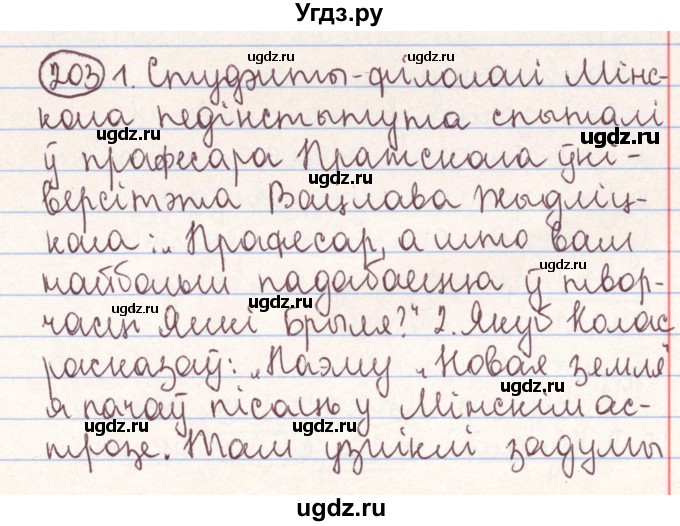 Угдз.ру
203 1. Студэнты-філолагі Мінс-
кага педінстытута спыталі
ў прафесара Пражскага ўні-
версітэта Вацлава Жыдліц-
кага: „Прафесар, а што вам
найбольш падабаецца ў твор-
часці Янкі Брыля?“ 2. Якуб Колас
расказаў: „Паэму „Новая зямля“
я пачаў пісаць у Мінскім ас-
трозе. Там узніклі задумы
ugdz.ru